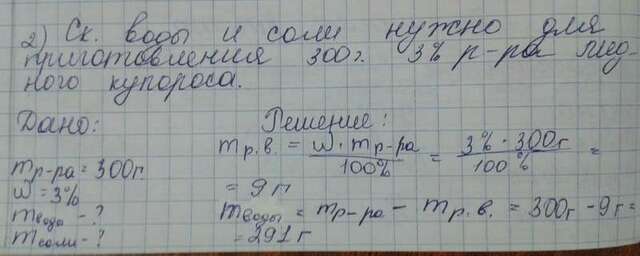 2) Ск. воды и соли нужно для
приготовления 300г. 3% р-ра мед-
ного купороса.
Дано:
Решение:
mр-ра = 300г.
w = 3%
mвода - ?
mсоли - ?
mр.в. = w · mр-ра / 100% = 3% · 300г / 100% =
= 9 г
mводы = mр-ра - mр.в. = 300г - 9г =
= 291 г